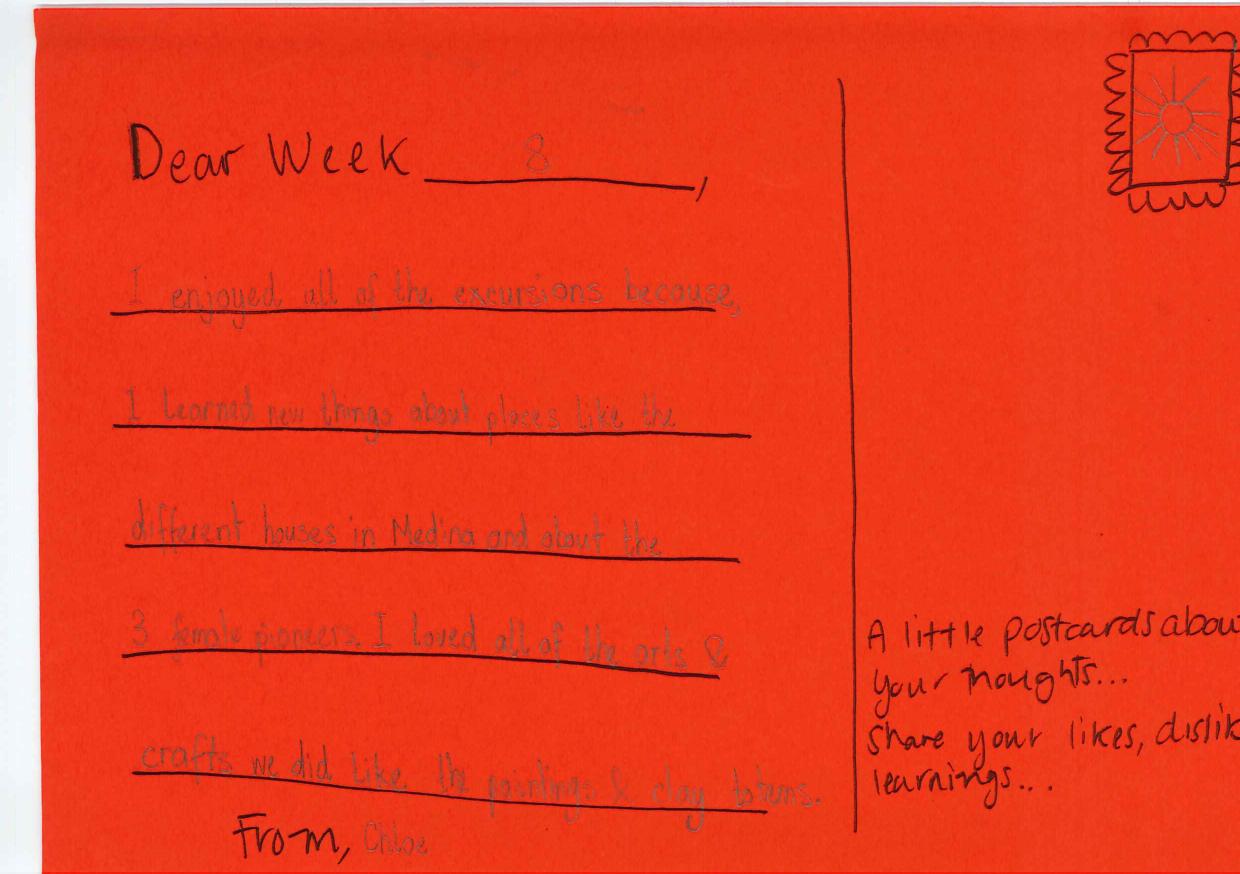 Dear Week 8,
I enjoyed all of the excursions because,
I learned new things about places like the
different houses in Medina and about the
3 female pioneers. I loved all of the arts &
crafts we did like the paintings & clay totems.
From, Chloe
A little postcards abou
your thoughts...
Share your likes, dislik
learnings...